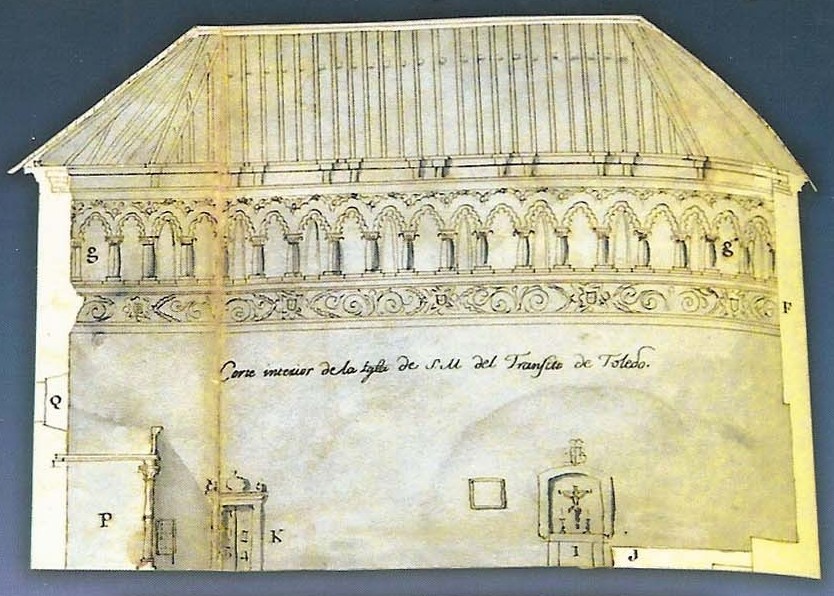 g g
F
Corte interior de la Iglª de S.M del Transito de Toledo.
Q
P K I J